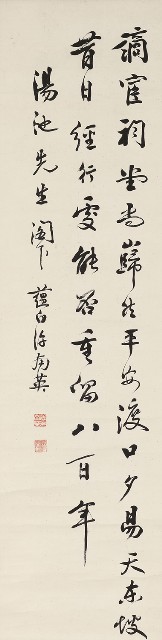 謫宦祠堂尚巋然平安渡口夕昜天東坡
昔日經行處能否重留八百年
湯池先生 閣下 蘊白許南英